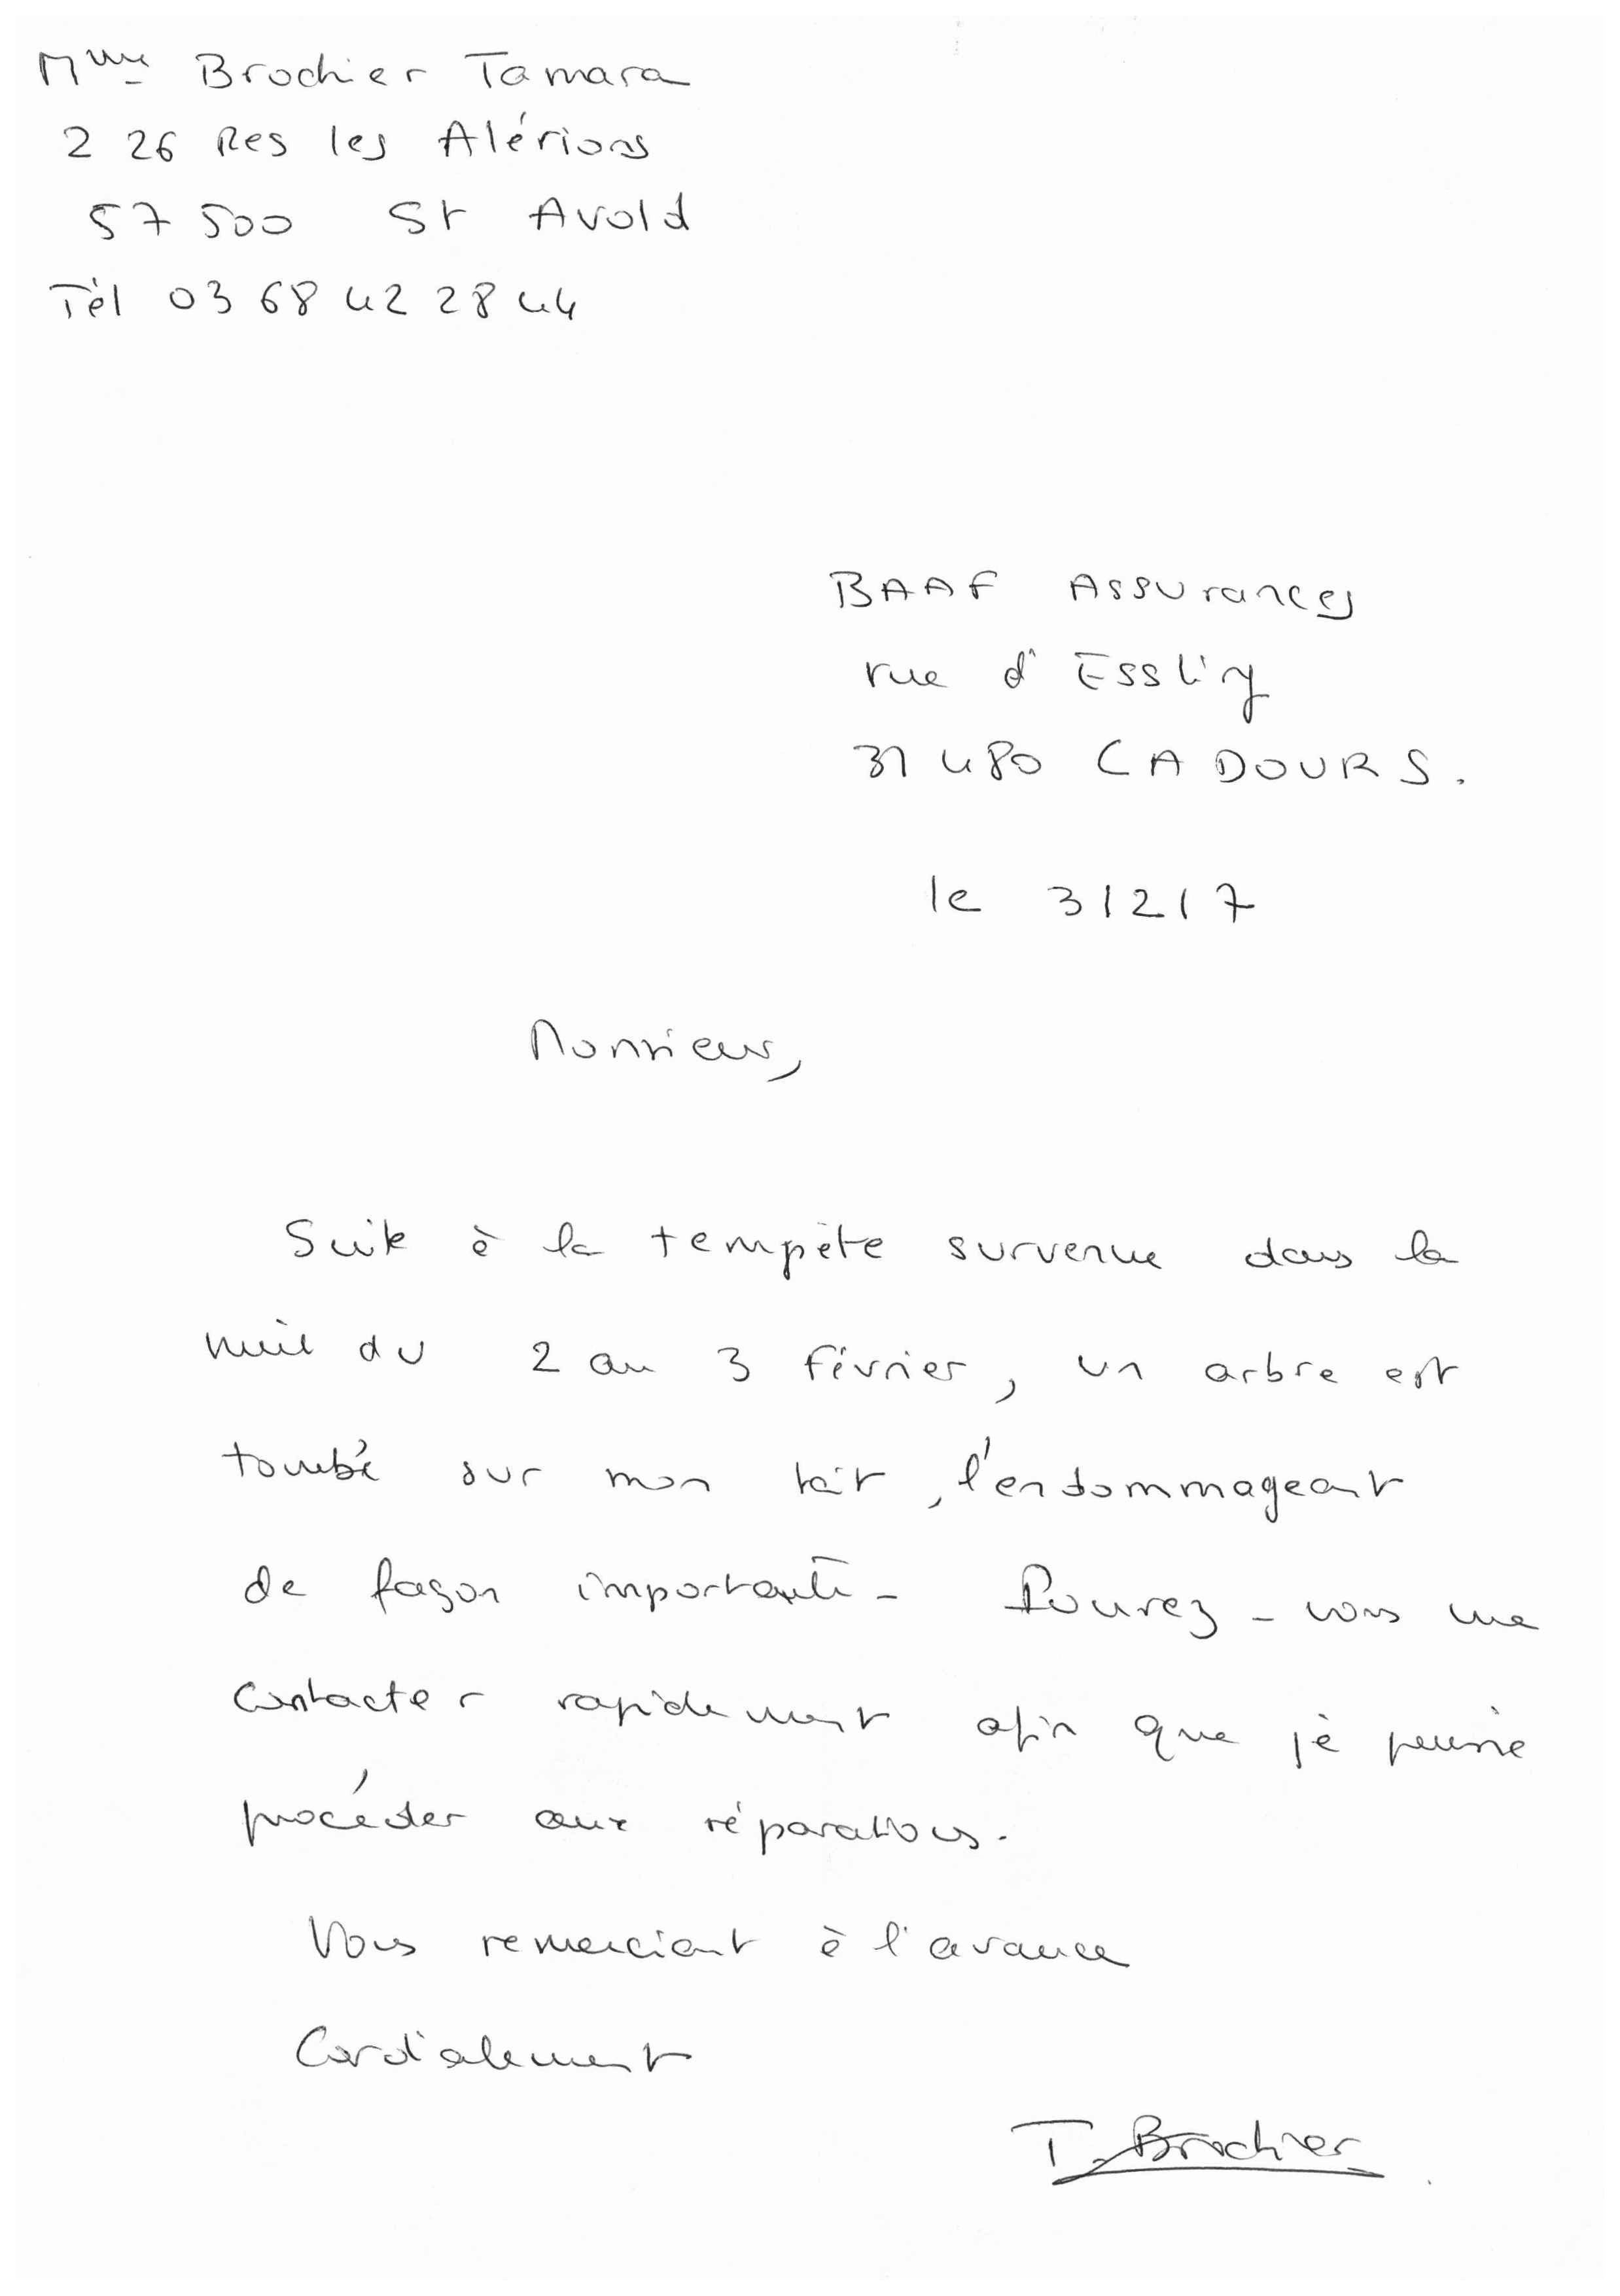 Mme Brochier Tamara
2 26 Res les Alérions
57 500 St Avold
Tèl 03 68 42 28 44
BAAF Assurances
rue d'Essling
31 480 CADOURS.
le 3/2/7
Monsieur,
Suite à la tempête survenue dans la
nuit du 2 au 3 février, un arbre est
tombé sur mon toit, l'endommageant
de façon importante - Pouvez-vous me
contacter rapidement afin que je puisse
procéder aux réparations.
Vous remerciant à l'avance
Cordialement
T. Brochier